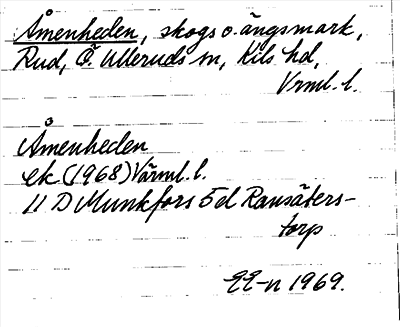 Åmenheden, skogs o. ängsmark,
Rud, Ö. Ulleruds sn, Kils hd,
Vrml. l.
Åmenheden
ek (1968) Värml. l.
11 D Munkfors 5d Ransäters-
torp
EE-n 1969.